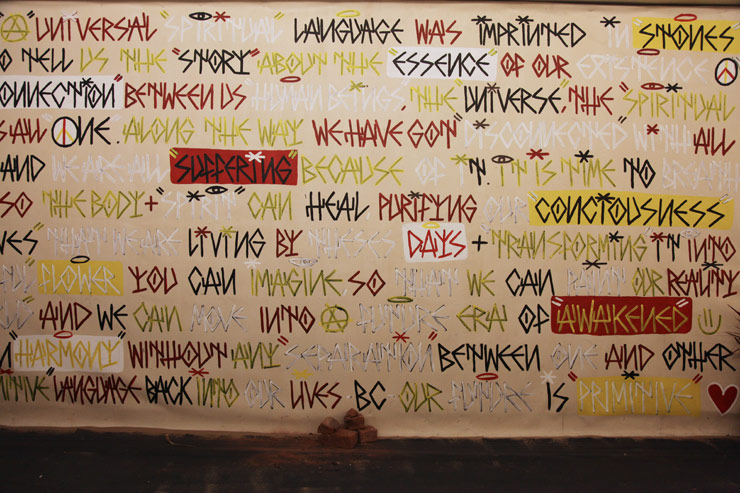 UNIVERSAL SPIRITUAL LANGUAGE WAS IMPRINTED IN STONES
TO TELL US THE "STORY" ABOUT THE "ESSENCE" OF OUR EXISTENCE
CONNECTION" BETWEEN US HUMAN BEINGS, "THE "UNIVERSE, "THE "SPIRITUAL
IS ALL ONE. ALONG THE WAY WE HAVE GOT "DISCONNECTED WITH ALL
AND WE ARE ALL "SUFFERING" BECAUSE OF IT. IT IS TIME TO
SO THE BODY + SPIRIT CAN HEAL PURIFYING OUR CONCIOUSNESS
THAT WE ARE LIVING BY THESE DAYS + TRANSFORMING IT INTO
FLOWER YOU CAN IMAGINE SO THAT WE CAN PAINT OUR REALITY
AND WE CAN MOVE INTO A FUTURE ERA OF "AWAKENED"
HARMONY WITHOUT ANY SEPARATION BETWEEN ONE AND OTHER
LANGUAGE BACK INTO OUR LIVES BC OUR FUTURE IS PRIMITIVE